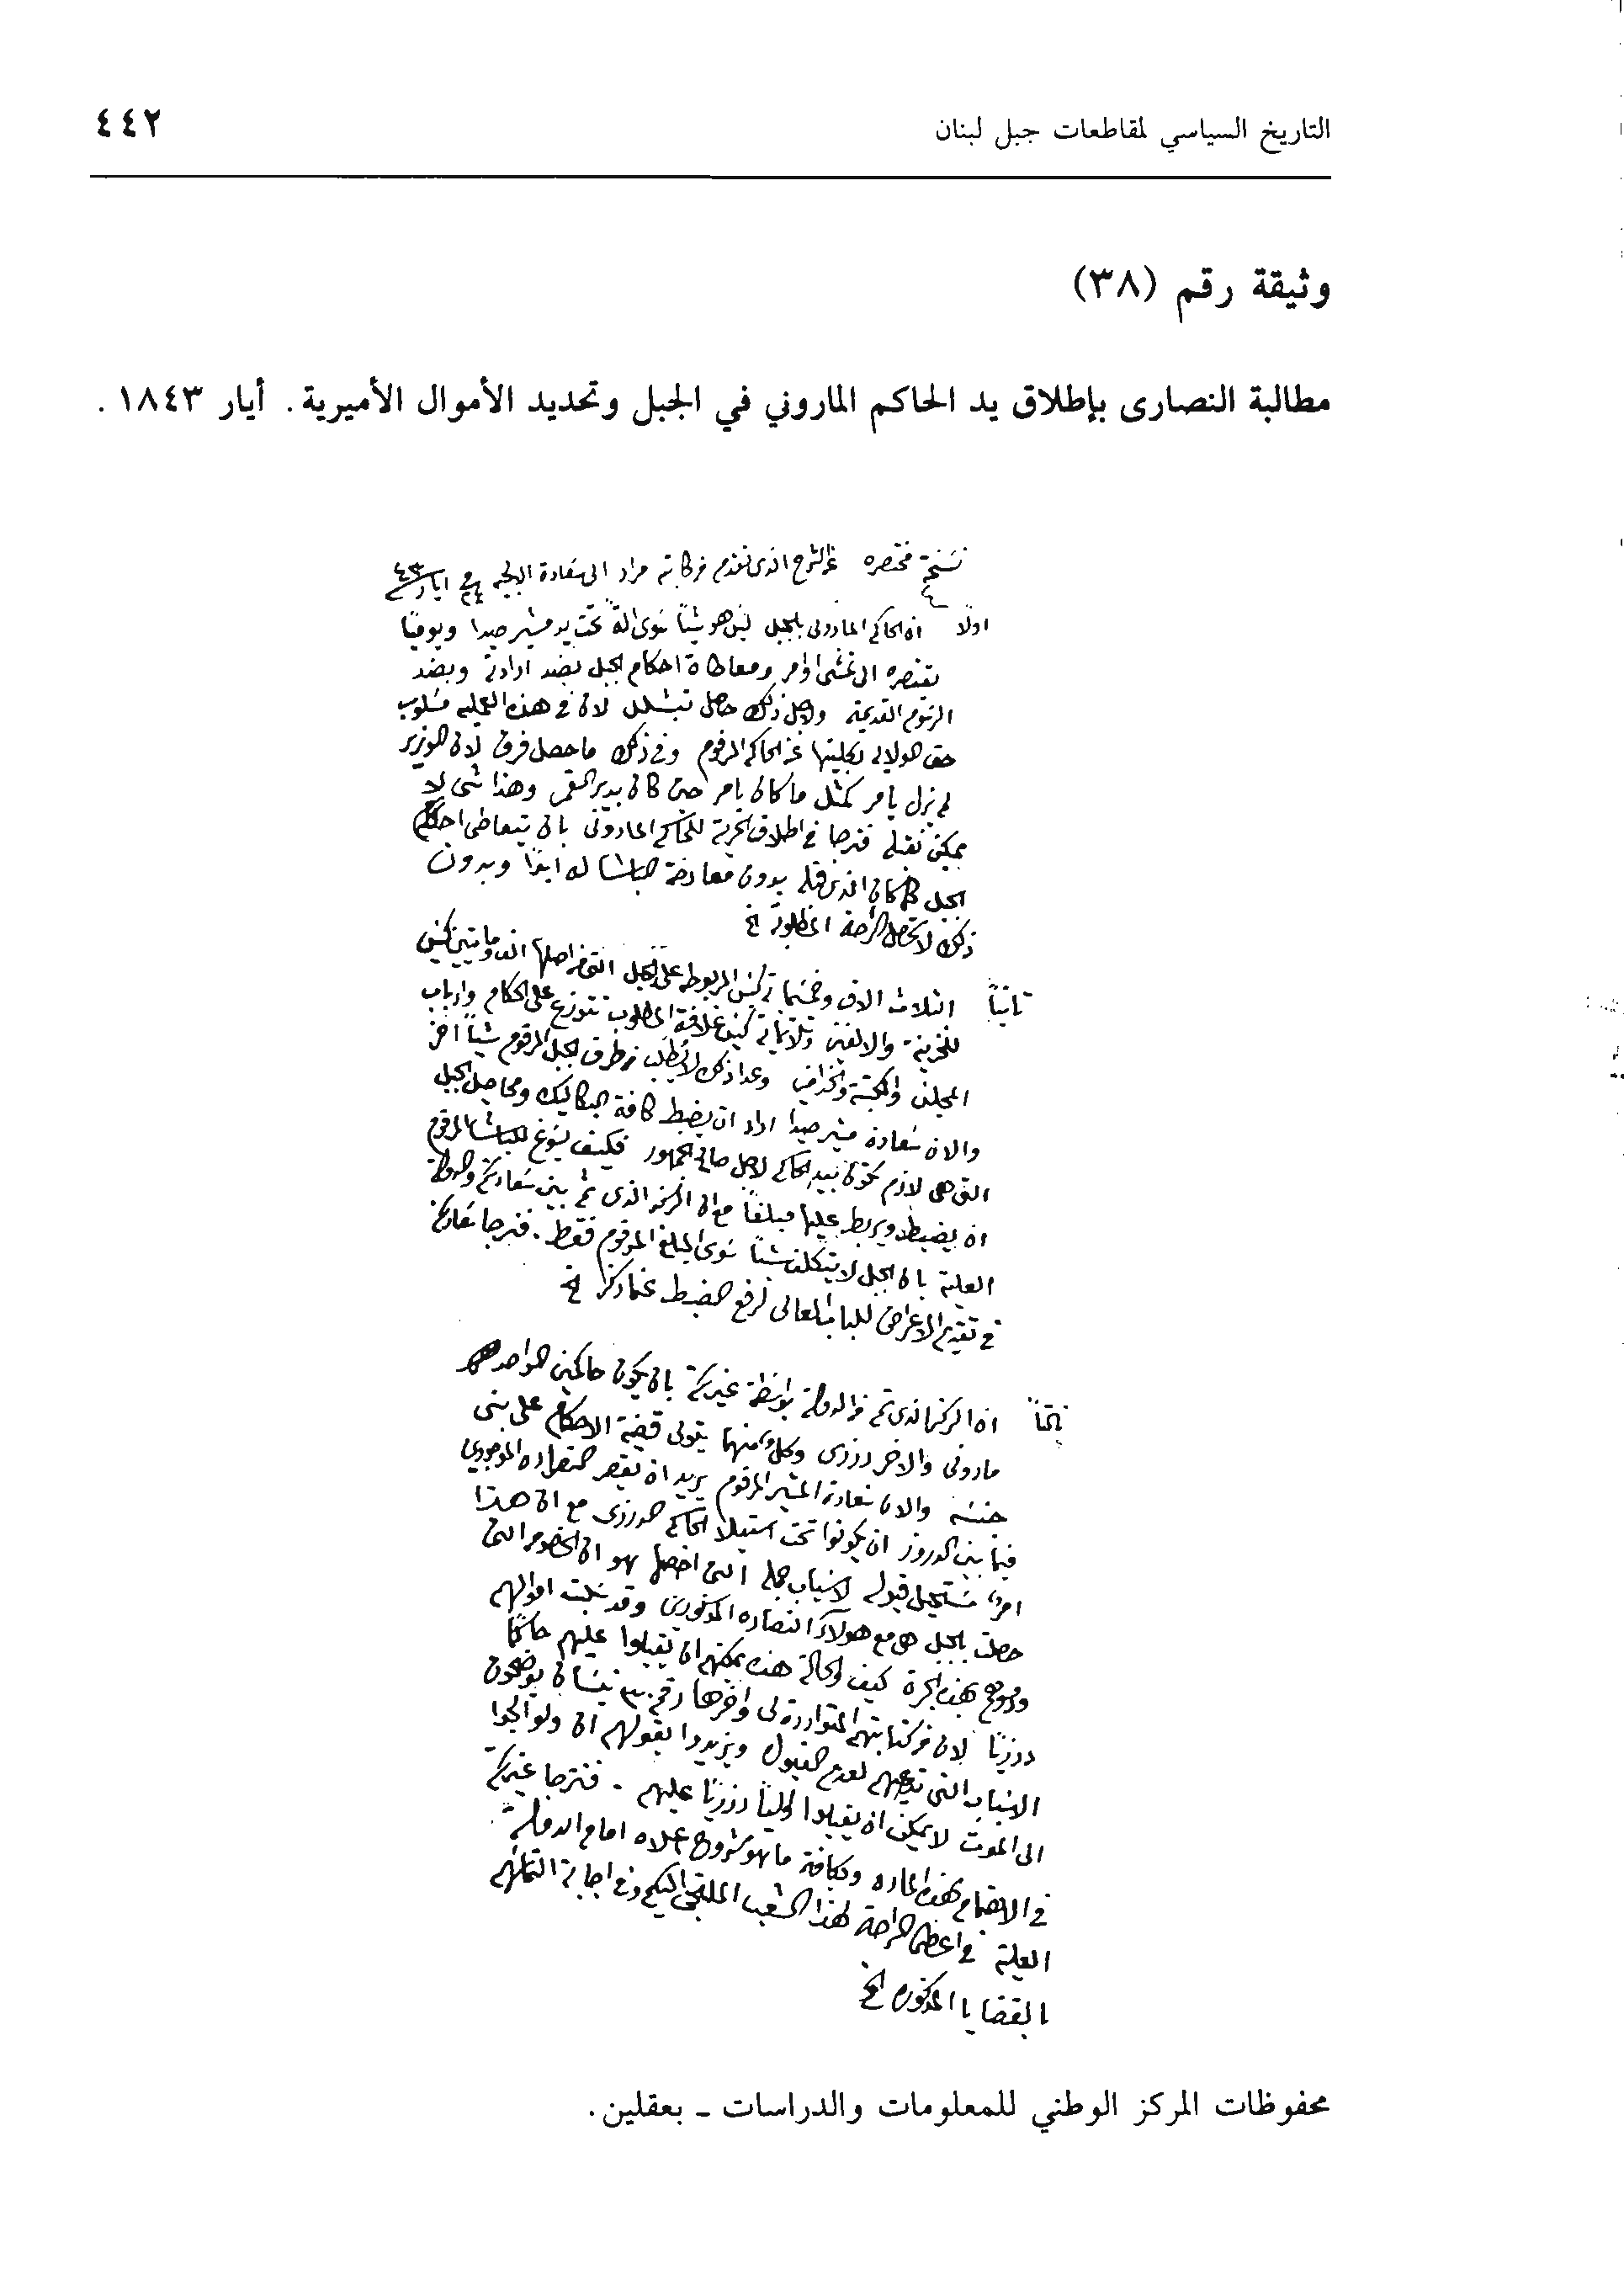 التاريخ السياسي لمقاطعات جبل لبنان
٤٤٢
وثيقة رقم (٣٨)
مطالبة النصارى بإطلاق يد الحاكم الماروني في الجبل وتحديد الأموال الأميرية. أيار ١٨٤٣.
نسخة مختصره عن الشرح الذي تقدم من كاتبه مراد الى سعادة ايار ٤٣
اولاً ان الحاكم الماروني بالجبل ليس هو شيئاً سوى الة تحت يد مشير صيدا ويومياً
الى تمشي اوامر ومعاطاة احكام الجبل بضد ارادته وبضد
الرسوم القديمة ولاجل ذلك حاصل لان في هذه العمليه مسلوب
حق الولاية بكليتها عن الحاكم المرقوم وفي ذلك ما حصل فرق لان الوزير
لم يزل يأمر كمثل ما كان يامر حين كان بدير القمر وهذا شي لا
يمكن نقبله فنرجا في اطلاق الحرية للحاكم الماروني بان يتعاطى احكام
الجبل كما كان الذي قبله بدون معارضة الباشا له ابداً وبدون
ذلك لا تحصل الراحة المطلوبة الخ
ثانياً الثلاث الاف وخمسماية كيس المربوطه على الجبل التي من اصلها الف وماتين كيس
للخزينة والالفين وثلاثماية كيس علافة المطلوب تتوزع على الحكام وارباب
المجلس والكتبة وعدا ذلك لا يُطلب من طرف الجبل المرقوم شيئاً اخر
والان سعادة مشير صيدا اراد ان يضبط كافة البكاليك ومحاصيل الجبل
التي هي لازم تكون بيد الحاكم لاجل صالح الجمهور فكيف يسوغ للباشا المرقوم
ان يضبط ويربط عليها مبلغاً مع ان الذي تم بين سعادتكم والدولة
العلية بان الجبل لا يتكلف شيئاً سوى المبلغ المرقوم فقط. فنرجا سعادتكم
في تقديم الاعراض للباب العالي لرفع الضبط عما ذكر الخ
ثالثاً ان الذي تم من الدولة بواسطة غيرتكم بان يكون حاكمين الواحد
ماروني والاخر درزي وكل منهما يتولى الاحكام على بني
جنسه والان سعادة المشير المرقوم يريد ان النصاره الموجودين
فيما بين الدروز ان يكونوا تحت استيلا الحاكم الدرزي مع ان هذا
امراً مستحيل قبوله لاسباب جملة التي اخصها هو ان الخصومه التي
حصلت بالجبل هي مع هولاء النصاره المذكورين وقد سُلبت اموالهم
كيف والحالة هذه يمكنهم ان يقبلوا عليهم حاكماً
درزياً لان من كتاباتهم المتواردة لي واخرها رقم ٣٠ نيسان يوضحون
الاسباب التي لعدم القبول ويزيدوا بقولهم ان ولو
الى الموت لا يمكن ان يقبلوا درزياً عليهم. فنرجا غيرتكم
في الاهتمام بهذه الماده وبكافة ما هو مشروح اعلاه امام الدولة
العلية في اعطا الراحة لهذا الشعب الملتجي اليكم وفي اجابة
القضايا المذكوره الخ
محفوظات المركز الوطني للمعلومات والدراسات ـ بعقلين.